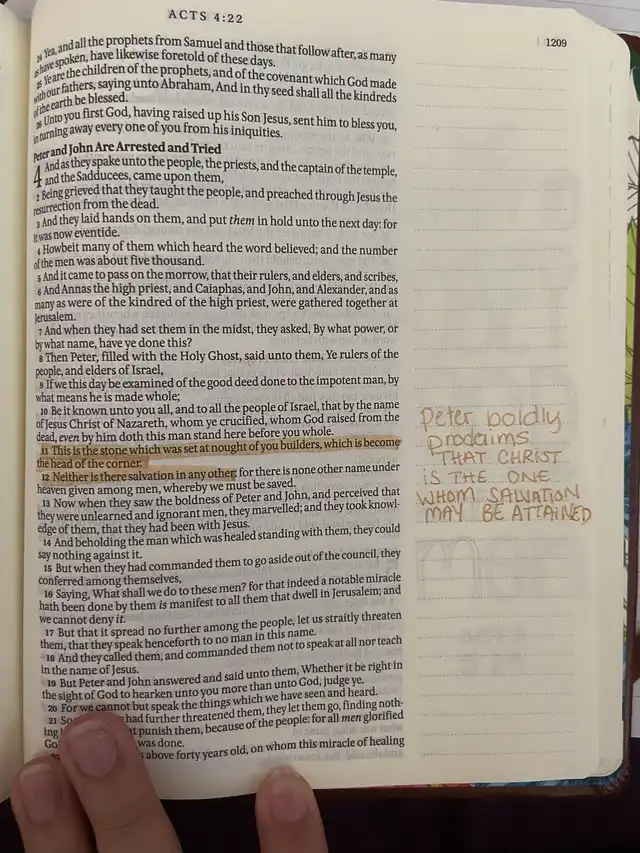 ACTS 4:22
1209
24 Yea, and all the prophets from Samuel and those that follow after, as many
as have spoken, have likewise foretold of these days.
25 Ye are the children of the prophets, and of the covenant which God made
with our fathers, saying unto Abraham, And in thy seed shall all the kindreds
of the earth be blessed.
26 Unto you first God, having raised up his Son Jesus, sent him to bless you,
in turning away every one of you from his iniquities.
Peter and John Are Arrested and Tried
4 And as they spake unto the people, the priests, and the captain of the temple,
and the Sadducees, came upon them,
2 Being grieved that they taught the people, and preached through Jesus the
resurrection from the dead.
3 And they laid hands on them, and put them in hold unto the next day: for
it was now eventide.
4 Howbeit many of them which heard the word believed; and the number
of the men was about five thousand.
5 And it came to pass on the morrow, that their rulers, and elders, and scribes,
6 And Annas the high priest, and Caiaphas, and John, and Alexander, and as
many as were of the kindred of the high priest, were gathered together at
Jerusalem.
7 And when they had set them in the midst, they asked, By what power, or
by what name, have ye done this?
8 Then Peter, filled with the Holy Ghost, said unto them, Ye rulers of the
people, and elders of Israel,
9 If we this day be examined of the good deed done to the impotent man, by
what means he is made whole;
10 Be it known unto you all, and to all the people of Israel, that by the name
of Jesus Christ of Nazareth, whom ye crucified, whom God raised from the
dead, even by him doth this man stand here before you whole.
11 This is the stone which was set at nought of you builders, which is become
the head of the corner.
12 Neither is there salvation in any other: for there is none other name under
heaven given among men, whereby we must be saved.
13 Now when they saw the boldness of Peter and John, and perceived that
they were unlearned and ignorant men, they marvelled; and they took knowl-
edge of them, that they had been with Jesus.
14 And beholding the man which was healed standing with them, they could
say nothing against it.
15 But when they had commanded them to go aside out of the council, they
conferred among themselves,
16 Saying, What shall we do to these men? for that indeed a notable miracle
hath been done by them is manifest to all them that dwell in Jerusalem; and
we cannot deny it.
17 But that it spread no further among the people, let us straitly threaten
them, that they speak henceforth to no man in this name.
18 And they called them, and commanded them not to speak at all nor teach
in the name of Jesus.
19 But Peter and John answered and said unto them, Whether it be right in
the sight of God to hearken unto you more than unto God, judge ye.
20 For we cannot but speak the things which we have seen and heard.
21 So had further threatened them, they let them go, finding noth-
ing punish them, because of the people: for all men glorified
was done.
above forty years old, on whom this miracle of healing
Peter boldly
proclaims
THAT CHRIST
IS THE ONE
WHOM SALVATION
MAY BE ATTAINED